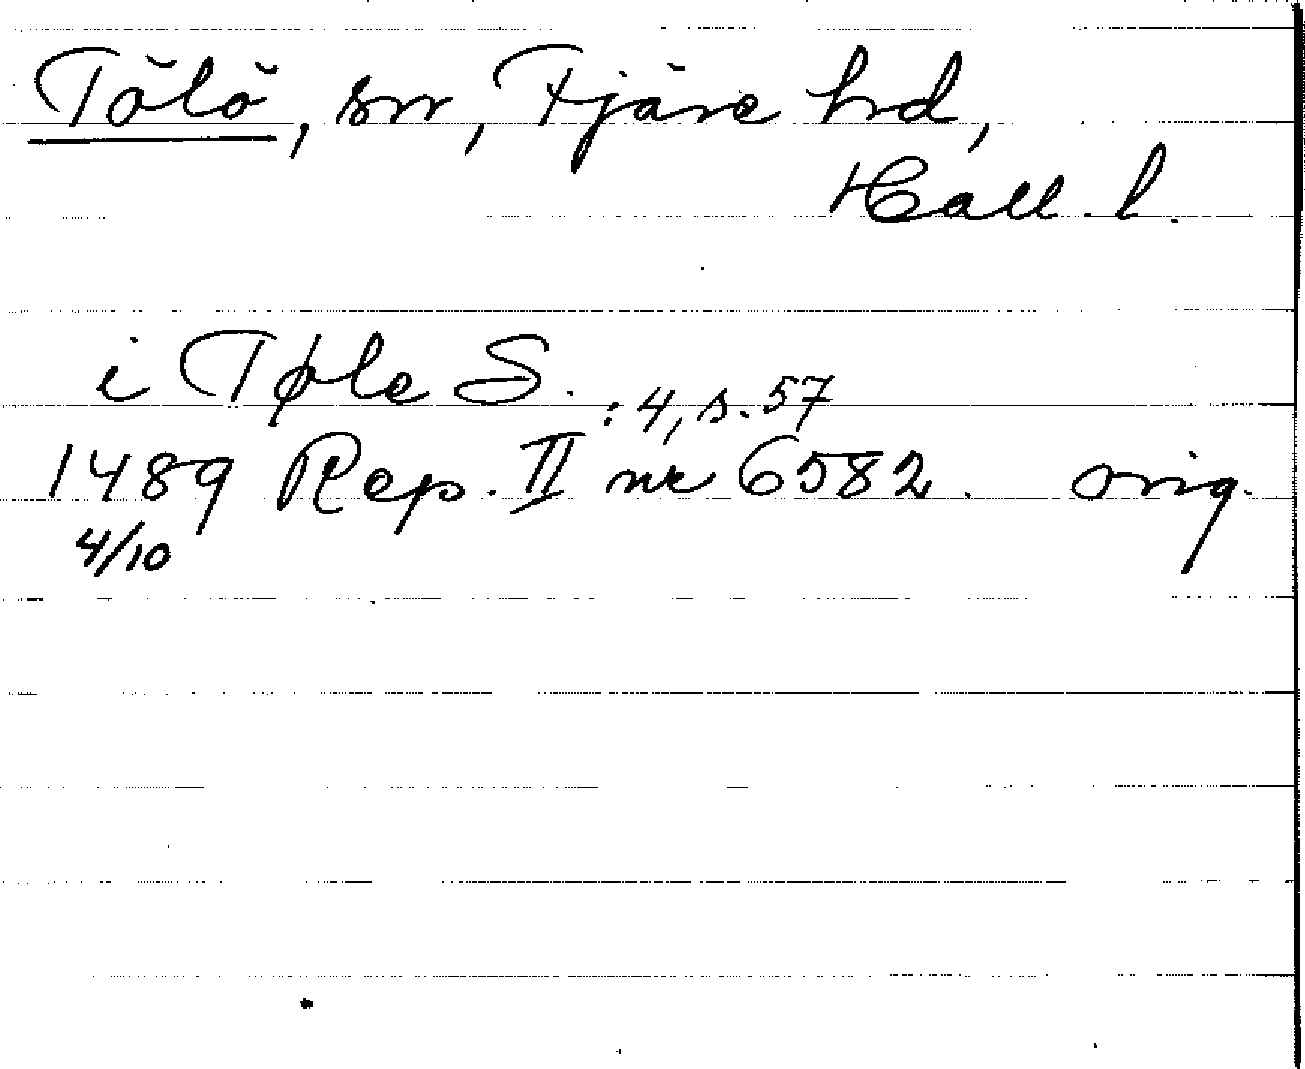 Tölö, sn, Fjäre hd,
Hall. l.
i Tøle S.
: 4, s. 57
1489 Rep. II nr 6582. orig.
4/10